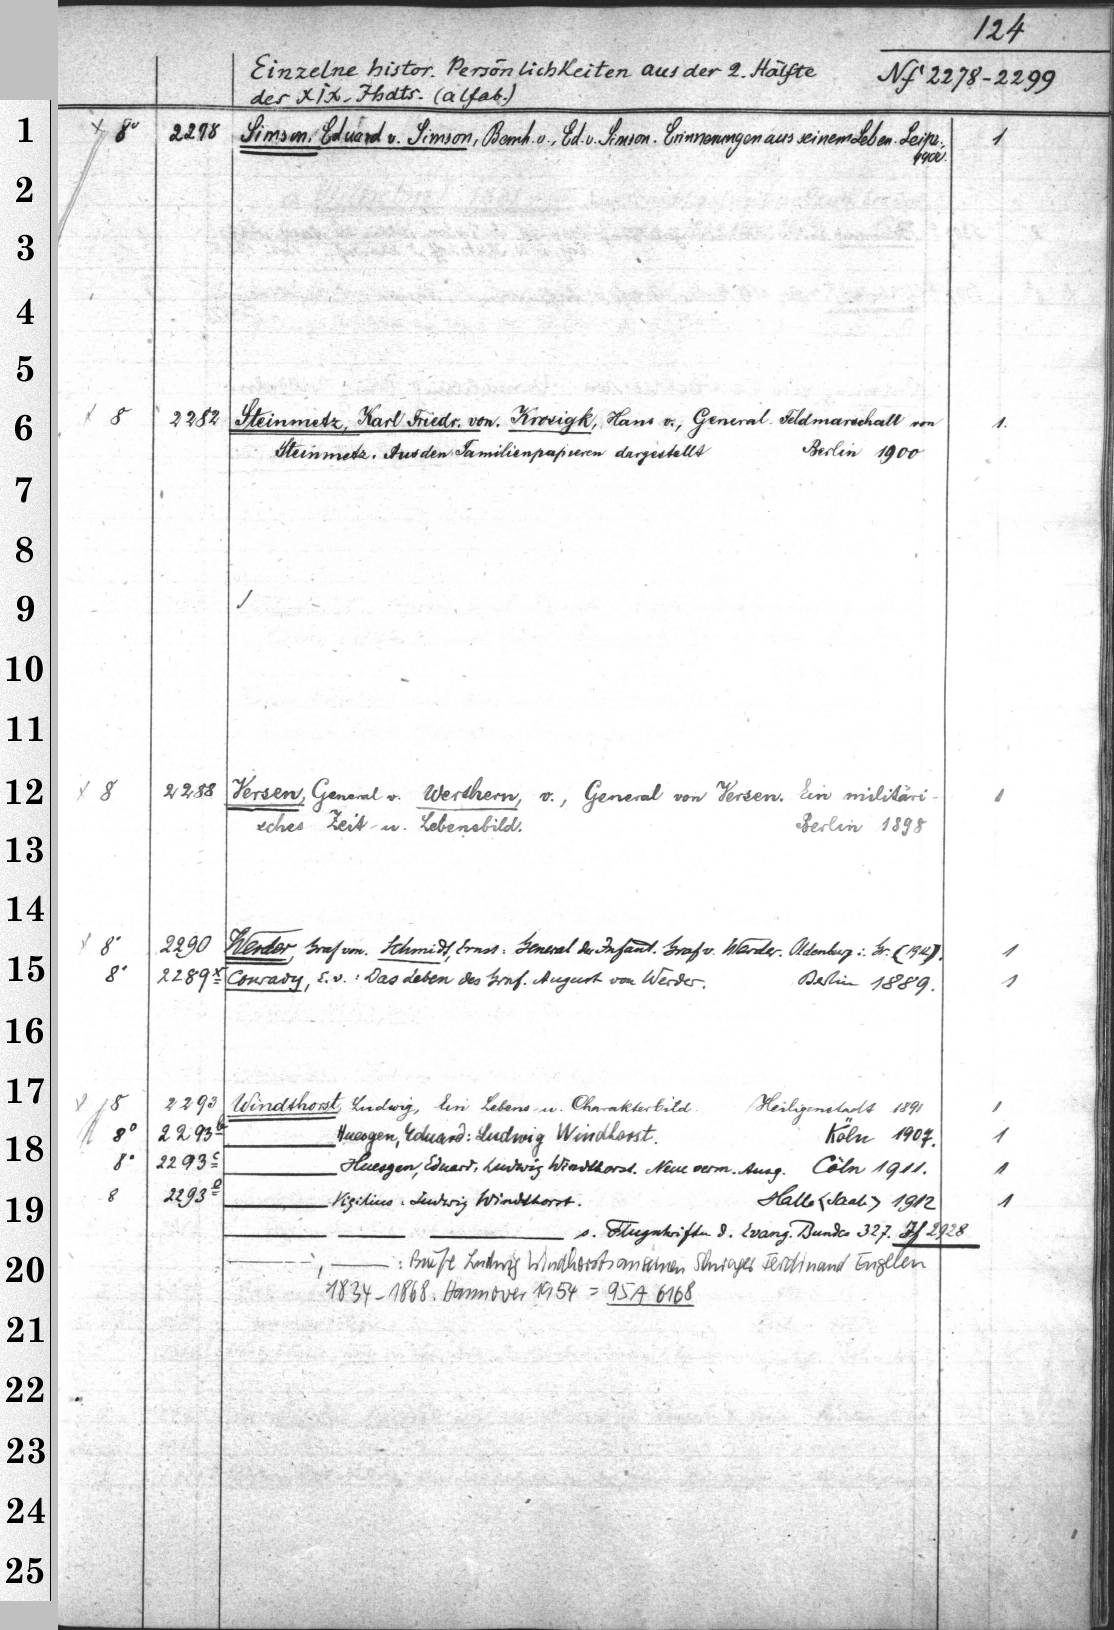 124
Einzelne histor. Persönlichkeiten aus der 2. Hälfte Nf 2278-2299
des XIX. Jhdts. (alfab.)
1 x 8° 2278 Simson, Eduard v. Simson, Bernh. v., Ed. v. Simson. Erinnerungen aus seinem Leben. Leipz. 1
1900.
2
3
4
5
6 x 8 2282 Steinmetz, Karl Friedr. von. Krosigk, Hans v., General Feldmarschall von 1.
Steinmetz. Aus den Familienpapieren dargestellt Berlin 1900
7
8
9
10
11
12 x 8 2288 Versen, General v. Werthern, v., General von Versen. Ein militäri- 1
sches Zeit- u. Lebensbild. Berlin 1898
13
14
x 8° 2290 Werder, Graf von. Schmidt, Ernst: General der Infant. Graf v. Werder. Oldenburg i. Gr. (1912). 1
15 8° 2289x Conrady, E. v.: Das Leben des Graf. August von Werder. Berlin 1889. 1
16
17 x 8 2293 Windthorst, Ludwig, Ein Lebens- u. Charakterbild. Heiligenstadt 1891 1
8° 2293b Huesgen, Eduard: Ludwig Windthorst. Köln 1907. 1
18 8° 2293c Huesgen, Eduard: Ludwig Windthorst. Neue verm. Ausg. Cöln 1911. 1
8 2293d Vigilius: Ludwig Windthorst. Halle <Saale> 1912 1
19 s. Flugschriften d. Evang. Bundes 327. If 2928
20 : Briefe Ludwig Windhorsts an seinen Schwager Ferdinand Engelen
1834-1868. Hannover 1954 = 95 A 6168
21
22
23
24
25